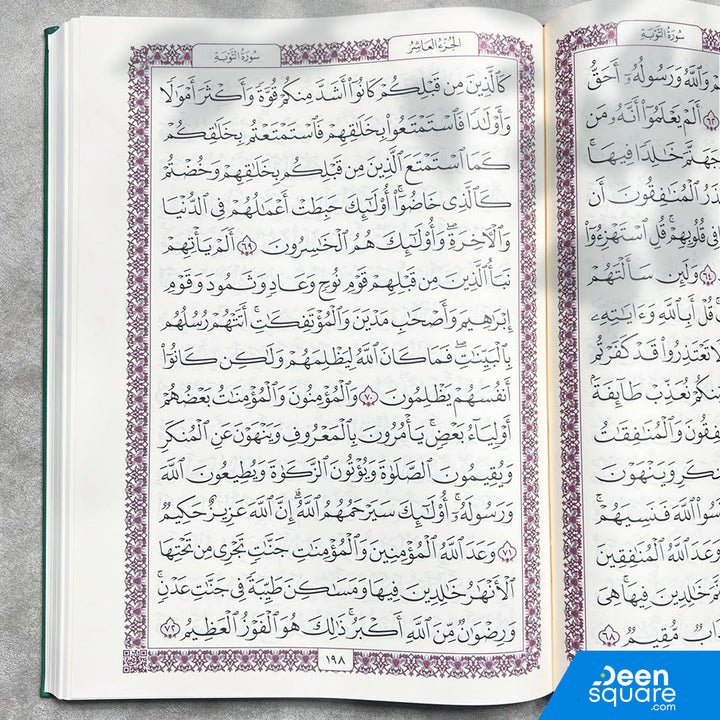 سُورَةُ التَّوْبَةِ
وَٱللَّهُ وَرَسُولُهُۥٓ أَحَقُّ
٦٢ أَلَمْ يَعْلَمُوٓا۟ أَنَّهُۥ مَن
جَهَنَّمَ خَٰلِدًا فِيهَا ۚ
ٱلْمُنَٰفِقُونَ أَن
فِى قُلُوبِهِمْ ۚ قُلِ ٱسْتَهْزِءُوٓا۟
٦٤ وَلَئِن سَأَلْتَهُمْ
قُلْ أَبِٱللَّهِ وَءَايَٰتِهِۦ
تَعْتَذِرُوا۟ قَدْ كَفَرْتُم
نُعَذِّبْ طَآئِفَةًۢ
وَٱلْمُنَٰفِقَٰتُ
وَيَنْهَوْنَ
ٱللَّهَ فَنَسِيَهُمْ ۗ
وَعَدَ ٱللَّهُ ٱلْمُنَٰفِقِينَ
خَٰلِدِينَ فِيهَا ۚ هِىَ
مُّقِيمٌ ٦٨
الجُزْءُ العَاشِرُ
سُورَةُ التَّوْبَةِ
كَٱلَّذِينَ مِن قَبْلِكُمْ كَانُوٓا۟ أَشَدَّ مِنكُمْ قُوَّةً وَأَكْثَرَ أَمْوَٰلًا
وَأَوْلَٰدًا فَٱسْتَمْتَعُوا۟ بِخَلَٰقِهِمْ فَٱسْتَمْتَعْتُم بِخَلَٰقِكُمْ
كَمَا ٱسْتَمْتَعَ ٱلَّذِينَ مِن قَبْلِكُم بِخَلَٰقِهِمْ وَخُضْتُمْ
كَٱلَّذِى خَاضُوٓا۟ ۚ أُو۟لَٰٓئِكَ حَبِطَتْ أَعْمَٰلُهُمْ فِى ٱلدُّنْيَا
وَٱلْءَاخِرَةِ ۖ وَأُو۟لَٰٓئِكَ هُمُ ٱلْخَٰسِرُونَ ٦٩ أَلَمْ يَأْتِهِمْ
نَبَأُ ٱلَّذِينَ مِن قَبْلِهِمْ قَوْمِ نُوحٍ وَعَادٍ وَثَمُودَ وَقَوْمِ
إِبْرَٰهِيمَ وَأَصْحَٰبِ مَدْيَنَ وَٱلْمُؤْتَفِكَٰتِ ۚ أَتَتْهُمْ رُسُلُهُم
بِٱلْبَيِّنَٰتِ ۖ فَمَا كَانَ ٱللَّهُ لِيَظْلِمَهُمْ وَلَٰكِن كَانُوٓا۟
أَنفُسَهُمْ يَظْلِمُونَ ٧٠ وَٱلْمُؤْمِنُونَ وَٱلْمُؤْمِنَٰتُ بَعْضُهُمْ
أَوْلِيَآءُ بَعْضٍ ۚ يَأْمُرُونَ بِٱلْمَعْرُوفِ وَيَنْهَوْنَ عَنِ ٱلْمُنكَرِ
وَيُقِيمُونَ ٱلصَّلَوٰةَ وَيُؤْتُونَ ٱلزَّكَوٰةَ وَيُطِيعُونَ ٱللَّهَ
وَرَسُولَهُۥٓ ۚ أُو۟لَٰٓئِكَ سَيَرْحَمُهُمُ ٱللَّهُ ۗ إِنَّ ٱللَّهَ عَزِيزٌ حَكِيمٌ
٧١ وَعَدَ ٱللَّهُ ٱلْمُؤْمِنِينَ وَٱلْمُؤْمِنَٰتِ جَنَّٰتٍ تَجْرِى مِن تَحْتِهَا
ٱلْأَنْهَٰرُ خَٰلِدِينَ فِيهَا وَمَسَٰكِنَ طَيِّبَةً فِى جَنَّٰتِ عَدْنٍ ۚ
وَرِضْوَٰنٌ مِّنَ ٱللَّهِ أَكْبَرُ ۚ ذَٰلِكَ هُوَ ٱلْفَوْزُ ٱلْعَظِيمُ ٧٢
١٩٨
Deen
square
.com